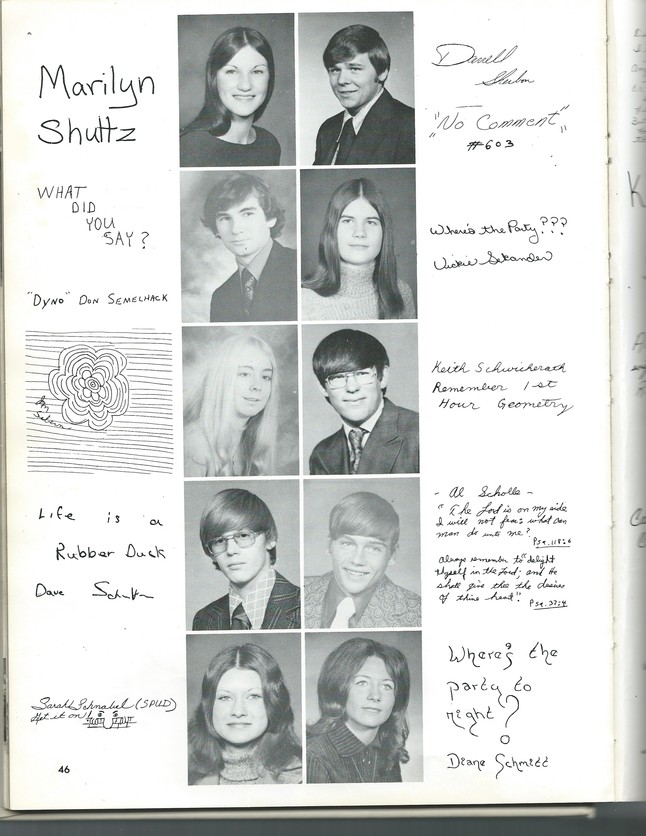 Marilyn
Shultz
Darell
"No Comment"
#603
WHAT
DID
YOU
SAY?
Where's the Party???
Vickie Sekander
"DYNO" DON SEMELHACK
Keith Schwickerath
Remember 1st
Hour Geometry
Life is a
Rubber Duck
Dave
- Al Scholle -
"The Lord is on my side
I will not fear: what can
man do unto me?"
Psa. 118:6
Always remember to "delight
thyself in the Lord; and He
shall give thee the desires
of thine heart".
Psa. 37:4
Sarah Schnabel (SPUD)
Get it on!
Where's the
party to
night?
Diane Schmidt
46